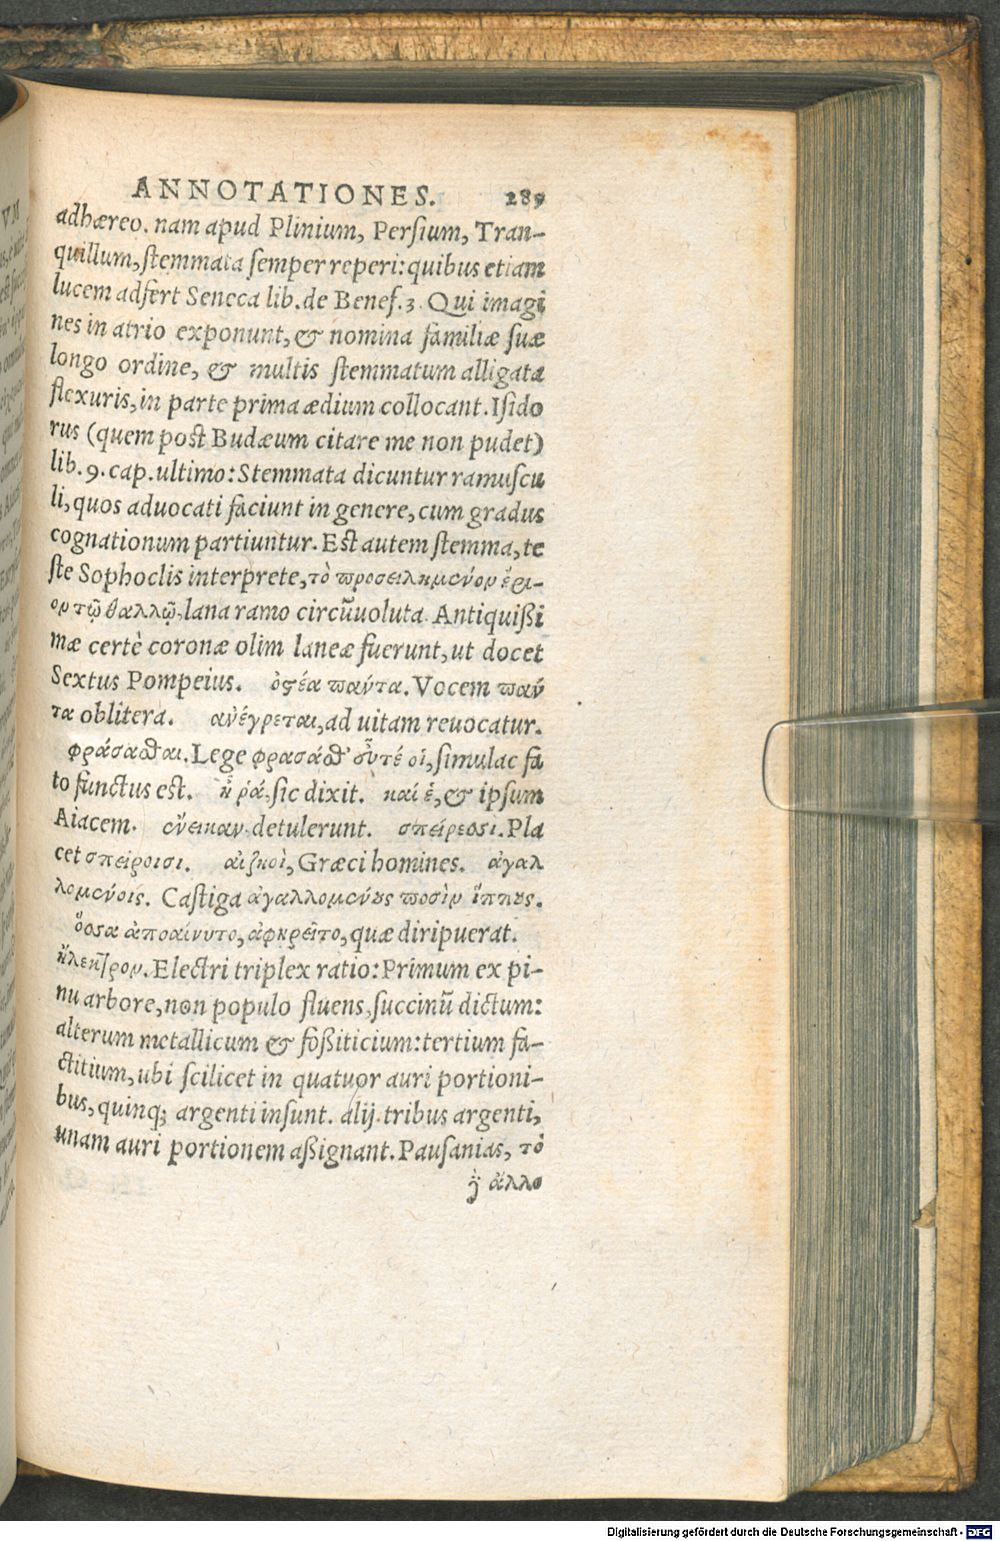 ANNOTATIONES. 289
adhæreo. nam apud Plinium, Persium, Tran-
quillum, stemmata semper reperi: quibus etiam
lucem adfert Seneca lib. de Benef. 3. Qui imagi
nes in atrio exponunt, & nomina familiæ suæ
longo ordine, & multis stemmatum alligata
flexuris, in parte prima ædium collocant. Isido
rus (quem post Budæum citare me non pudet)
lib. 9. cap. ultimo: Stemmata dicuntur ramuscu
li, quos aduocati faciunt in genere, cum gradus
cognationum partiuntur. Est autem stemma, te
ste Sophoclis interprete, τὸ προσειλημένον ἔρι-
ον τῷ θαλλῷ, lana ramo circũuoluta. Antiquißi
mæ certè coronæ olim laneæ fuerunt, ut docet
Sextus Pompeius. ὀστέα πάντα. Vocem πάν
τα oblitera. ἀνέγρεται, ad uitam reuocatur.
φράσασθαι. Lege φρασάσθ' οὖτέ οἱ, simulac fa
to functus est. ἦ ῥά, sic dixit. καί ἑ, & ipsum
Aiacem. ἔνεικαν detulerunt. σπείρεσι. Pla
cet σπείροισι. αἰζηοὶ, Græci homines. ἀγαλ
λομένοις. Castiga ἀγαλλομένους ποσὶν ἵππους.
ὅσα ἀποαίνυτο, ἀφῃρεῖτο, quæ diripuerat.
ἤλεκτρον. Electri triplex ratio: Primum ex pi-
nu arbore, non populo fluens, succinũ dictum:
alterum metallicum & foßiticium: tertium fa-
ctitium, ubi scilicet in quatuor auri portioni-
bus, quinq; argenti insunt. alij tribus argenti,
unam auri portionem aßignant. Pausanias, τὸ
ἄλλο
Digitalisierung gefördert durch die Deutsche Forschungsgemeinschaft - DFG